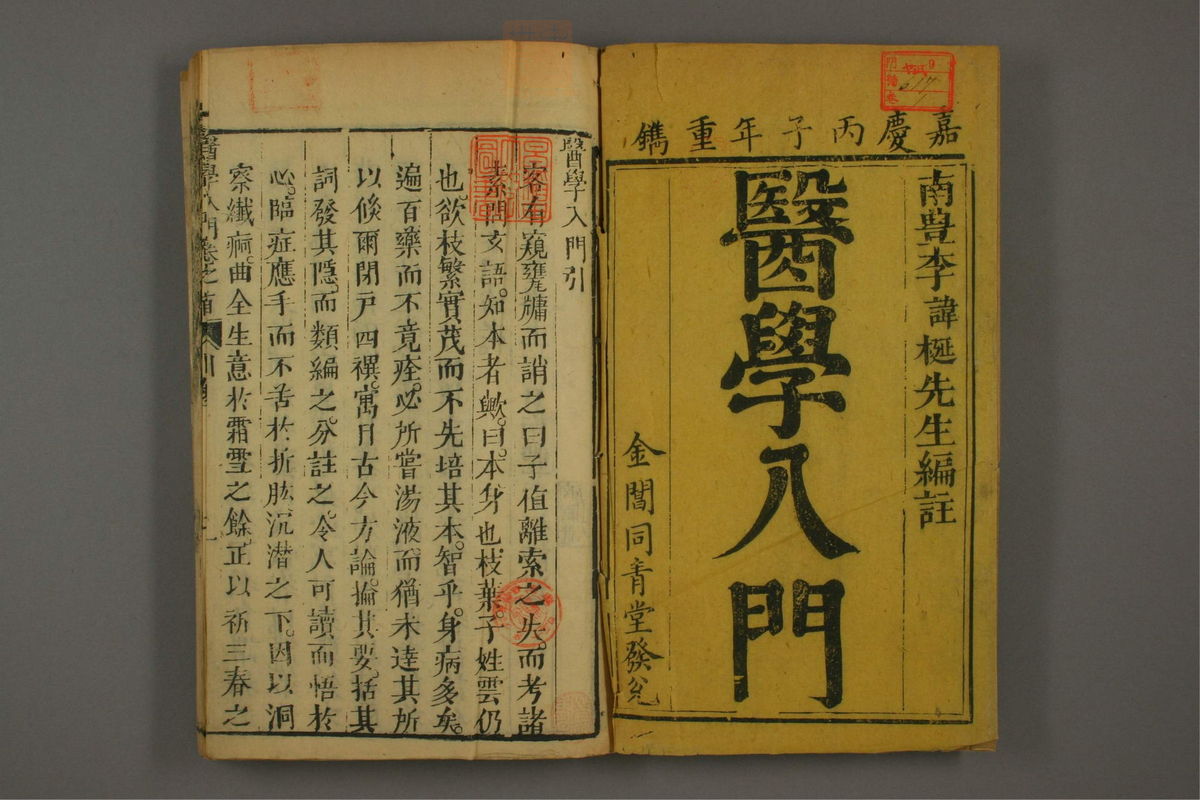 嘉慶丙子年重鐫
南豊李諱梴先生編註
醫學入門
金閶同青堂發兌
醫學入門引
客有窺甕牖而誚之曰子值離索之失而考諸
素問玄語知本者歟曰本身也枝葉子姓雲仍
也欲枝繁實茂而不先培其本智乎身病多矣
遍百藥而不竟痊必所嘗湯液而猶未達其所
以倏爾閉戶四禩寓目古今方論掄其要括其
詞發其隱而類編之分註之令人可讀而悟於
心臨症應手而不苦於折肱沉潛之下因以洞
察纖痾曲全生意於霜雪之餘正以祈三春之
醫學入門卷之首